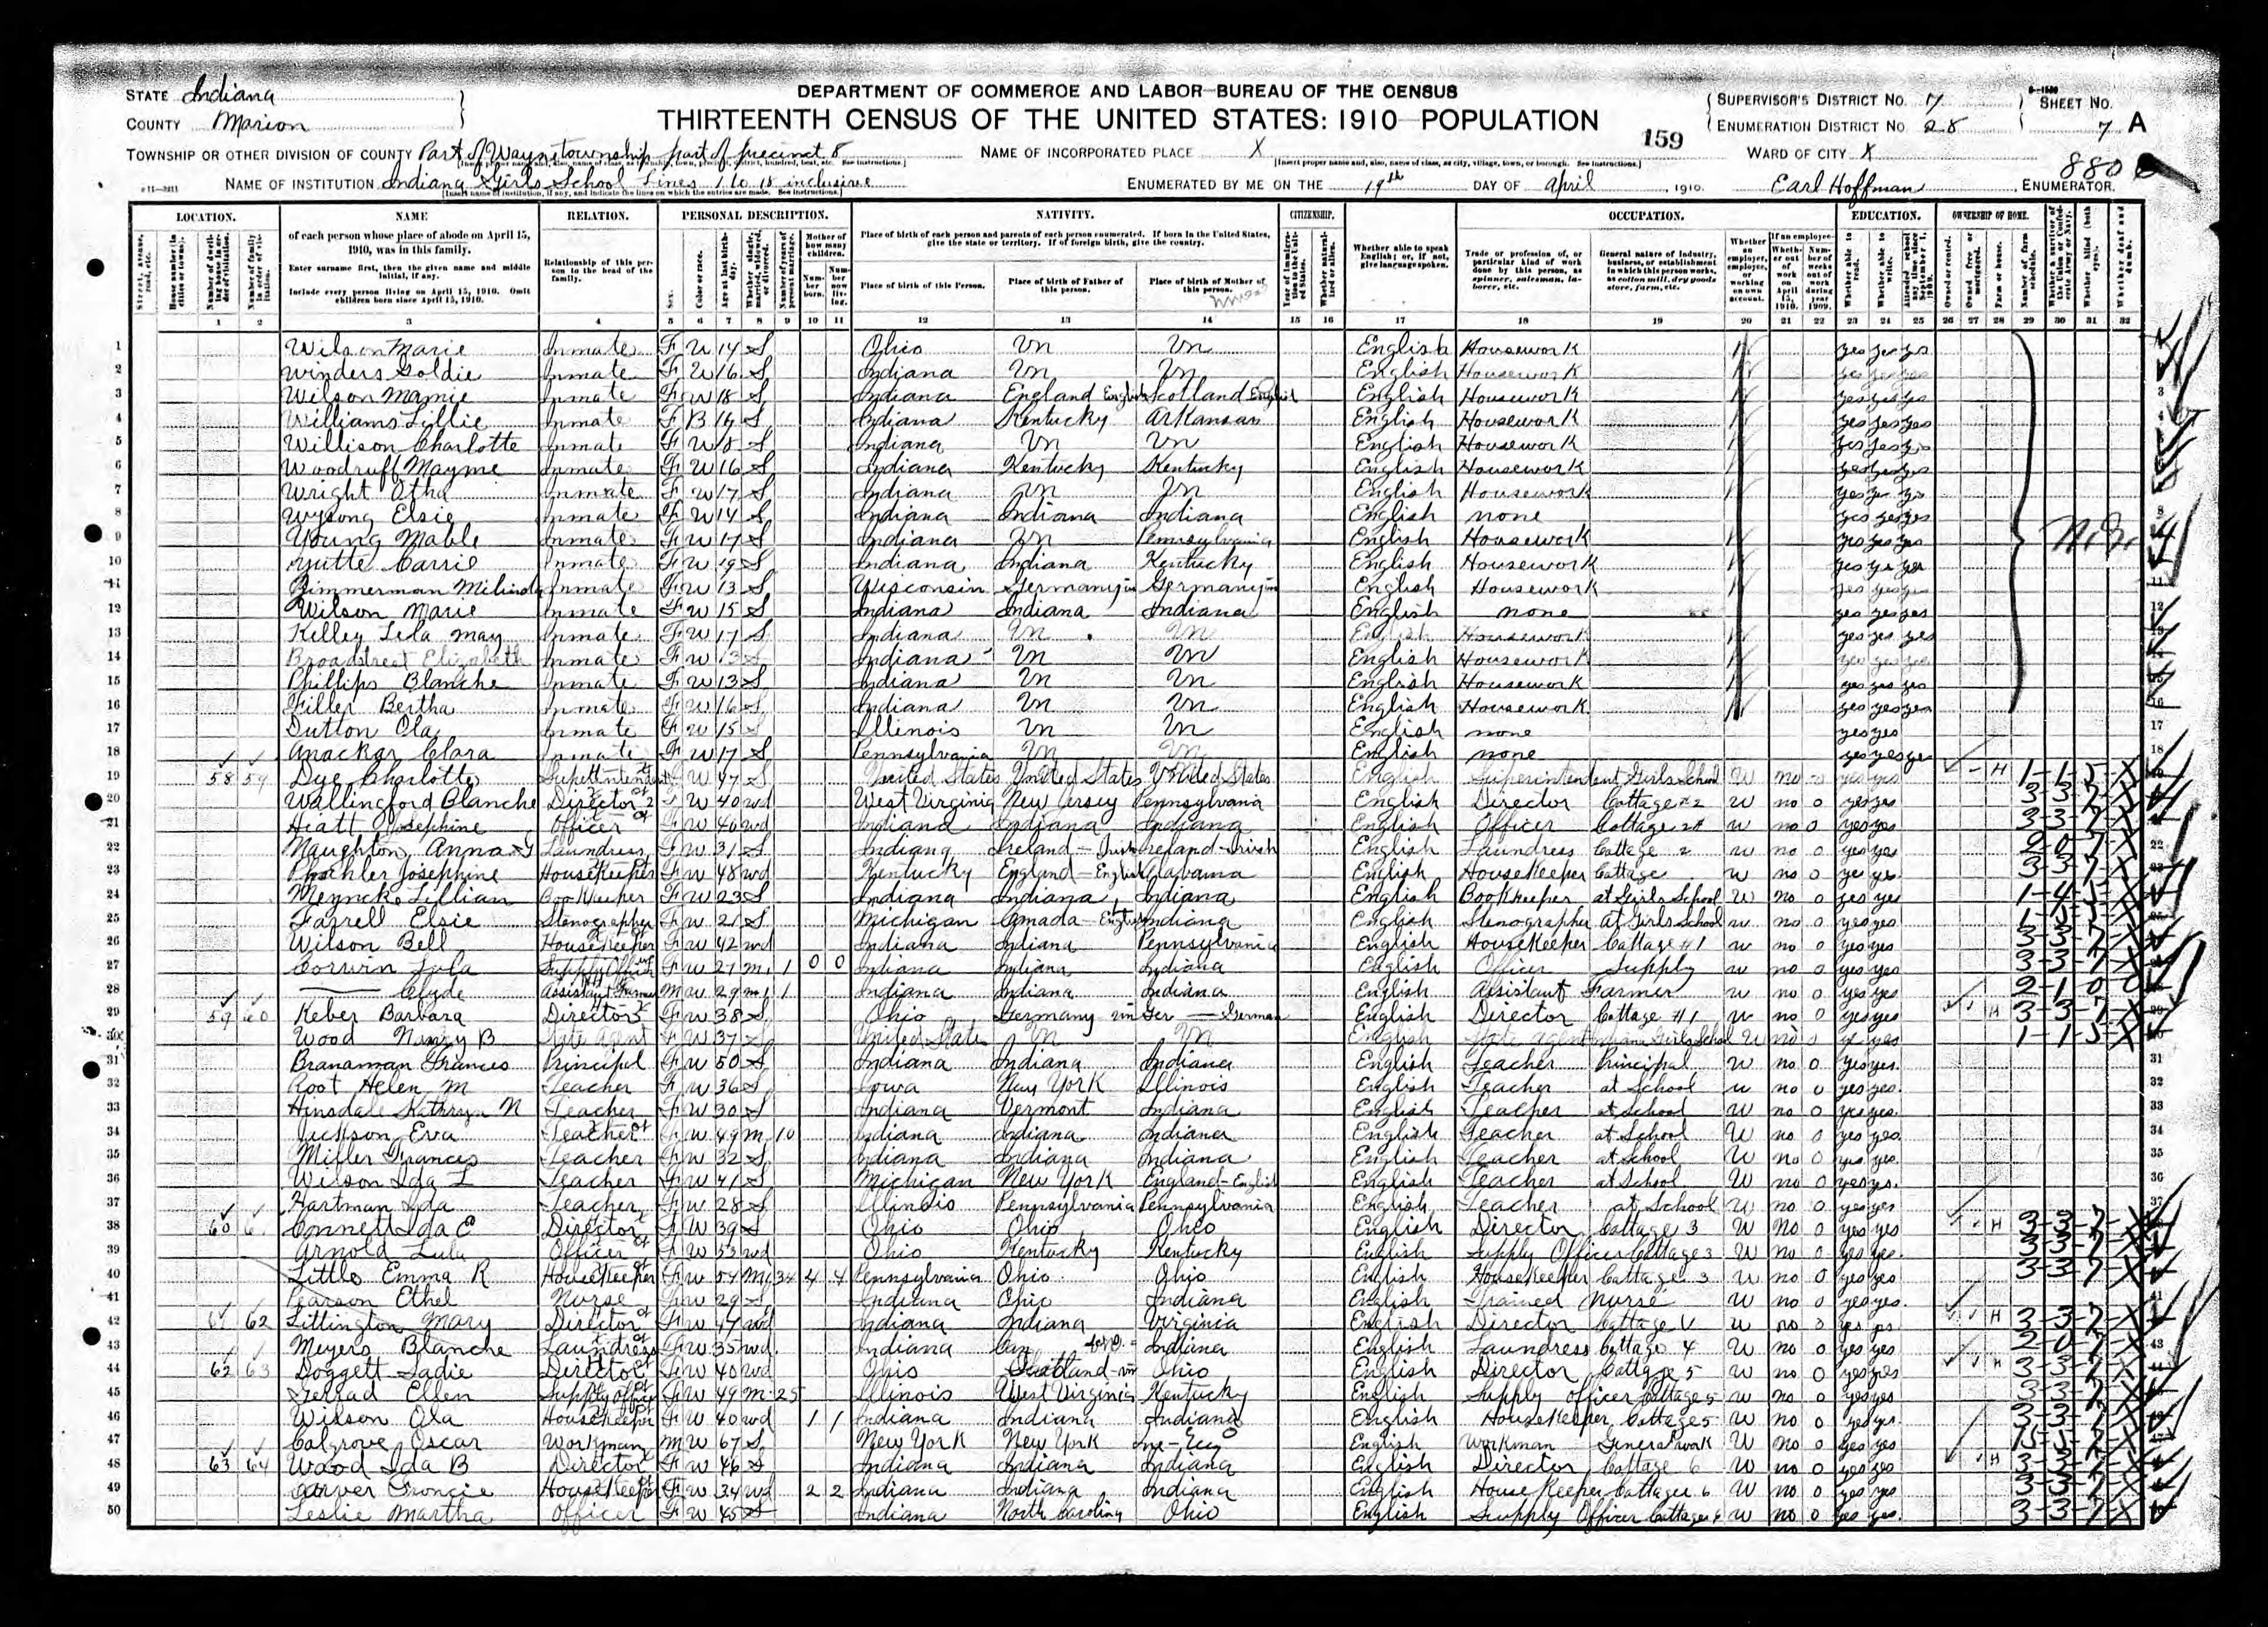 DEPARTMENT OF COMMERCE AND LABOR—BUREAU OF THE CENSUS
THIRTEENTH CENSUS OF THE UNITED STATES: 1910—POPULATION
STATE Indiana
COUNTY Marion
TOWNSHIP OR OTHER DIVISION OF COUNTY Part of Wayne township part of precinct 8
NAME OF INSTITUTION Indiana Girls School Lines 1 to 18 inclusive
NAME OF INCORPORATED PLACE X
159
ENUMERATED BY ME ON THE 19th DAY OF April, 1910.
SUPERVISOR'S DISTRICT No. 7
ENUMERATION DISTRICT No. 28
SHEET No. 7 A
WARD OF CITY X
880
Earl Hoffman, ENUMERATOR.
LOCATION. NAME RELATION. PERSONAL DESCRIPTION. NATIVITY. CITIZENSHIP. OCCUPATION. EDUCATION. OWNERSHIP OF HOME.
of each person whose place of abode on April 15, 1910, was in this family.
Enter surname first, then the given name and middle initial, if any.
Include every person living on April 15, 1910. Omit children born since April 15, 1910.
Relationship of this person to the head of the family.
Place of birth of each person and parents of each person enumerated. If born in the United States, give the state or territory. If of foreign birth, give the country.
Place of birth of this Person. Place of birth of Father of this person. Place of birth of Mother of this person.
Whether able to speak English; or, if not, give language spoken.
Trade or profession of, or particular kind of work done by this person, as spinner, salesman, laborer, etc.
General nature of industry, business, or establishment in which this person works, as cotton mill, dry goods store, farm, etc.
1 2 3 4 5 6 7 8 9 10 11 12 13 14 15 16 17 18 19 20 21 22 23 24 25 26 27 28 29 30 31 32
1 Wilson Marie Inmate F W 14 S Ohio Un Un English Housework yes yes yes
2 Winders Goldie Inmate F W 16 S Indiana Un Un English Housework yes yes yes
3 Wilson Mamie Inmate F W 18 S Indiana England English Scotland English English Housework yes yes yes
4 Williams Lillie Inmate F B 14 S Indiana Kentucky Arkansas English Housework yes yes yes
5 Willison Charlotte Inmate F W 18 S Indiana Un Un English Housework yes yes yes
6 Woodruff Mayme Inmate F W 16 S Indiana Kentucky Kentucky English Housework yes yes yes
7 Wright Inmate F W 17 S Indiana Un Un English Housework yes yes yes
8 Wysong Elsie Inmate F W 14 S Indiana Indiana Indiana English none yes yes yes
9 Young Mable Inmate F W 17 S Indiana Un Pennsylvania English Housework yes yes yes
10 Yutte Carrie Inmate F W 19 S Indiana Indiana Kentucky English Housework yes yes yes
11 Zimmerman Inmate F W 13 S Wisconsin Germany Germany English Housework yes yes yes
12 Wilson Marie Inmate F W 15 S Indiana Indiana Indiana English none yes yes yes
13 Kelley Lela May Inmate F W 17 S Indiana Un Un English Housework yes yes yes
14 Broadstreet Elizabeth Inmate F W 13 S Indiana Un Un English Housework yes yes yes
15 Phillips Blanche Inmate F W 13 S Indiana Un Un English Housework yes yes yes
16 Filler Bertha Inmate F W 16 S Indiana Un Un English Housework yes yes yes
17 Dutton Inmate F W 15 S Illinois Un Un English none yes yes
18 Anackar Clara Inmate F W 17 S Pennsylvania Un Un English none yes yes yes
19 58 59 Dye Charlotte F W 47 S United States United States United States English Superintendent Girls School W no 0 yes yes H 1-1-5-X
20 Wallingford Blanche Director F W 40 wd West Virginia New Jersey Pennsylvania English Director Cottage #2 W no 0 yes yes 3-3-7-X
21 Hiatt Josephine Officer F W 40 wd Indiana Indiana Indiana English Officer Cottage W no 0 yes yes 3-3-7-X
22 Naughton Anna Laundress F W 31 S Indiana Ireland-Irish Ireland-Irish English Laundress Cottage 2 W no 0 yes yes 2-0-7-X
23 Josephine Housekeeper F W 48 wd Kentucky England-English Alabama English Housekeeper Cottage W no 0 yes yes 3-3-7-X
24 Meyncke Lillian Bookkeeper F W 23 S Indiana Indiana Indiana English Bookkeeper at Girls School W no 0 yes yes
25 Farrell Elsie Stenographer F W 21 S Michigan Canada-English Indiana English Stenographer at Girls School W no 0 yes yes
26 Wilson Bell Housekeeper F W 42 wd Indiana Indiana Pennsylvania English Housekeeper Cottage #1 W no 0 yes yes 3-3-7-X
27 Corwin Lula Supply Officer F W 27 m 1 0 0 Indiana Indiana Indiana English Officer Supply W no 0 yes yes 3-3-7-X
28 —— Clyde Assistant Farmer M W 29 m 1 1 Indiana Indiana Indiana English Assistant Farmer W no 0 yes yes 2-1-0-0
29 59 60 Keber Barbara Director F W 38 S Ohio Germany Ger—German English Director Cottage #1 W no 0 yes yes H 3-3-7-X
30 Wood Nancy B State Agent F W 37 S United States Un Un English State Agent Indiana Girls School W no 0 yes yes 1-1-5-X
31 Branaman Frances Principal F W 50 S Indiana Indiana Indiana English Teacher Principal W no 0 yes yes
32 Root Helen M Teacher F W 36 S Iowa New York Illinois English Teacher at School W no 0 yes yes
33 Hinsdale Kathryn N Teacher F W 30 S Indiana Vermont Indiana English Teacher at School W no 0 yes yes
34 Jackson Eva Teacher F W 49 m 10 Indiana Indiana Indiana English Teacher at School W no 0 yes yes
35 Miller Frances Teacher F W 32 S Indiana Indiana Indiana English Teacher at School W no 0 yes yes
36 Wilson Ida L Teacher F W 41 S Michigan New York England-English English Teacher at School W no 0 yes yes
37 Hartman Ida Teacher F W 28 S Illinois Pennsylvania Pennsylvania English Teacher at School W no 0 yes yes
38 60 61 Connett Ida E Director F W 39 S Ohio Ohio Ohio English Director Cottage 3 W no 0 yes yes H 3-3-7-X
39 Arnold Lulu Officer F W 53 wd Ohio Kentucky Kentucky English Supply Officer Cottage 3 W no 0 yes yes 3-3-7-X
40 Little Emma R Housekeeper F W 54 m 34 4 4 Pennsylvania Ohio Ohio English Housekeeper Cottage 3 W no 0 yes yes 3-3-7-X
41 Pearson Ethel Nurse F W 29 S Indiana Ohio Indiana English Trained Nurse W no 0 yes yes
42 61 62 Littington Mary Director F W 47 wd Indiana Indiana Virginia English Director Cottage W no yes yes H 3-3-7-X
43 Meyers Blanche Laundress F W 35 wd Indiana Indiana English Laundress Cottage 4 W no 0 yes yes 2-0-7-X
44 62 63 Doggett Sadie Director F W 40 wd Ohio Scotland Ohio English Director Cottage 5 W no 0 yes yes H 3-3-7-X
45 Gerrad Ellen Supply officer F W 49 m 25 Illinois West Virginia Kentucky English Supply Officer Cottage 5 W no 0 yes yes 3-3-7-X
46 Wilson Ola Housekeeper F W 40 wd 1 1 Indiana Indiana Indiana English Housekeeper Cottage 5 W no 0 yes yes 3-3-7-X
47 Colgrove Oscar Workman M W 67 S New York New York English Workman General work W no 0 yes yes
48 63 64 Wood Ida B Director F W 46 S Indiana Indiana Indiana English Director Cottage 6 W no 0 yes yes H 3-3-7-X
49 Carver Francie Housekeeper F W 34 wd 2 2 Indiana Indiana Indiana English Housekeeper Cottage 6 W no 0 yes yes 3-3-7-X
50 Leslie Martha Officer F W 45 S Indiana North Carolina Ohio English Supply Officer Cottage 6 W no 0 yes yes 3-3-7-X